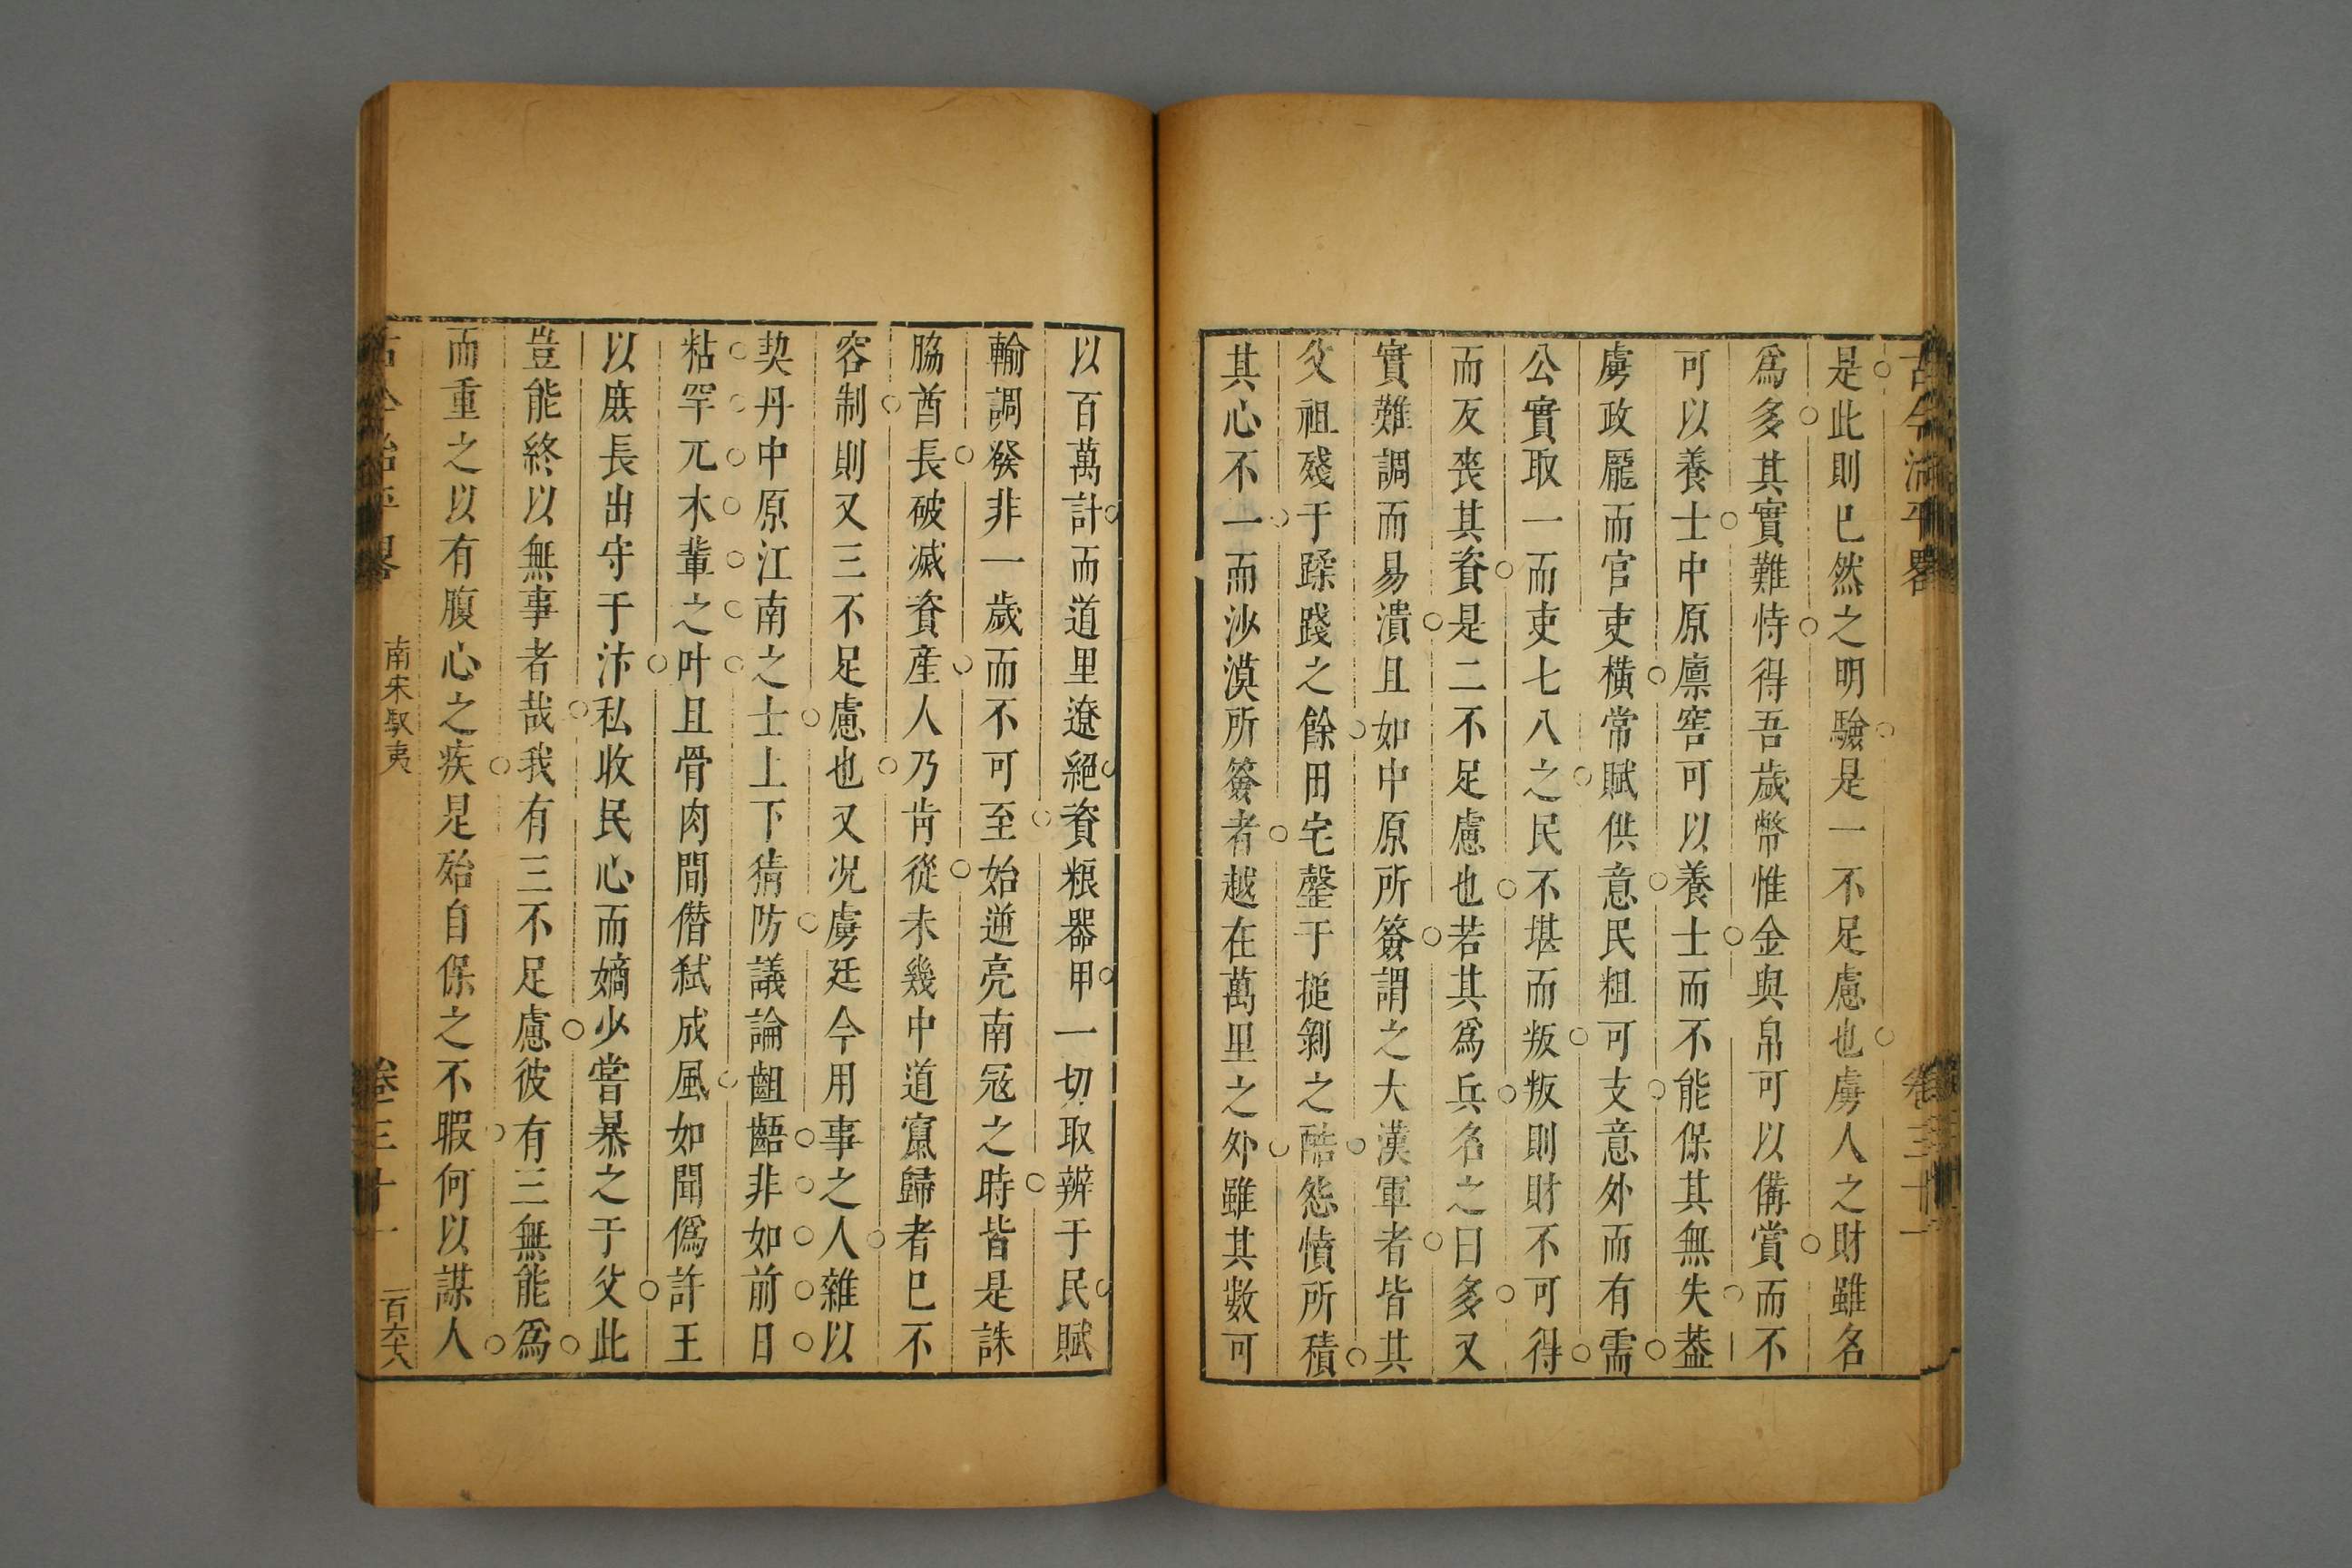 古今治平畧
卷三十一
是此則已然之明驗是一不足慮也虜人之財雖名
爲多其實難恃得吾歲幣惟金與帛可以備賞而不
可以養士中原廪窖可以養士而不能保其無失葢
虜政龎而官吏橫常賦供意民粗可支意外而有需
公實取一而吏七八之民不堪而叛叛則財不可得
而反喪其資是二不足慮也若其爲兵名之曰多又
實難調而易潰且如中原所簽謂之大漢軍者皆其
父祖殘于蹂踐之餘田宅罄于搥剝之酷怨憤所積
其心不一而沙漠所簽者越在萬里之外雖其數可
以百萬計而道里遼絕資粮器甲一切取辨于民賦
輸調發非一歲而不可至始逆亮南冦之時皆是誅
脇酋長破滅資產人乃肯從未幾中道竄歸者已不
容制則又三不足慮也又况虜廷今用事之人雜以
契丹中原江南之士上下猜防議論齟齬非如前日
粘罕兀术輩之叶且骨肉間僭弑成風如聞僞許王
以庶長出守于汴私收民心而嫡少嘗暴之于父此
豈能終以無事者哉我有三不足慮彼有三無能爲
而重之以有腹心之疾是殆自保之不暇何以謀人
古今治平畧
南宋馭夷
卷三十一
一百六六